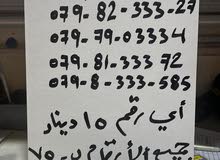 079-82-333-27
079-79-03334
079-81-333 72
079-8-333-585
أي رقم ١٥ دينار
جميع الأرقام